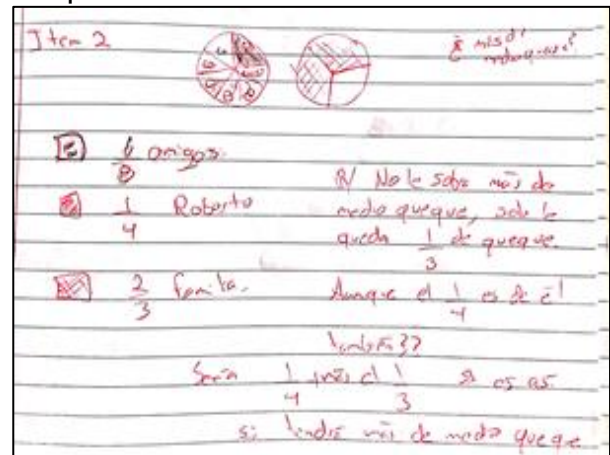 Item 2
más d
medio queque?
6/8 amigos.
1/4 Roberto
2/3 familia.
R/ No le sobra más de
medio queque, solo le
queda 1/3 de queque.
Aunque el 1/4 es de él
también??
Sería 1/4 más el 1/3 si es así
si tendría más de medio queque